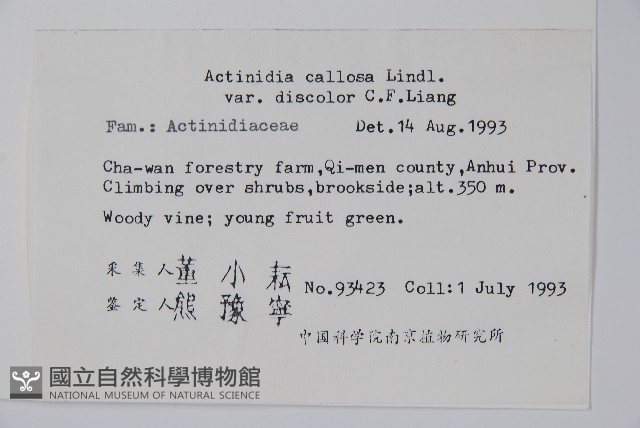 Actinidia callosa Lindl.
var. discolor C.F.Liang
Fam.: Actinidiaceae Det.14 Aug.1993
Cha-wan forestry farm,Qi-men county,Anhui Prov.
Climbing over shrubs,brookside;alt.350 m.
Woody vine; young fruit green.
采集人 董小耘
鉴定人 熊豫寧 No.93423 Coll:1 July 1993
中国科学院南京植物研究所
國立自然科學博物館
NATIONAL MUSEUM OF NATURAL SCIENCE